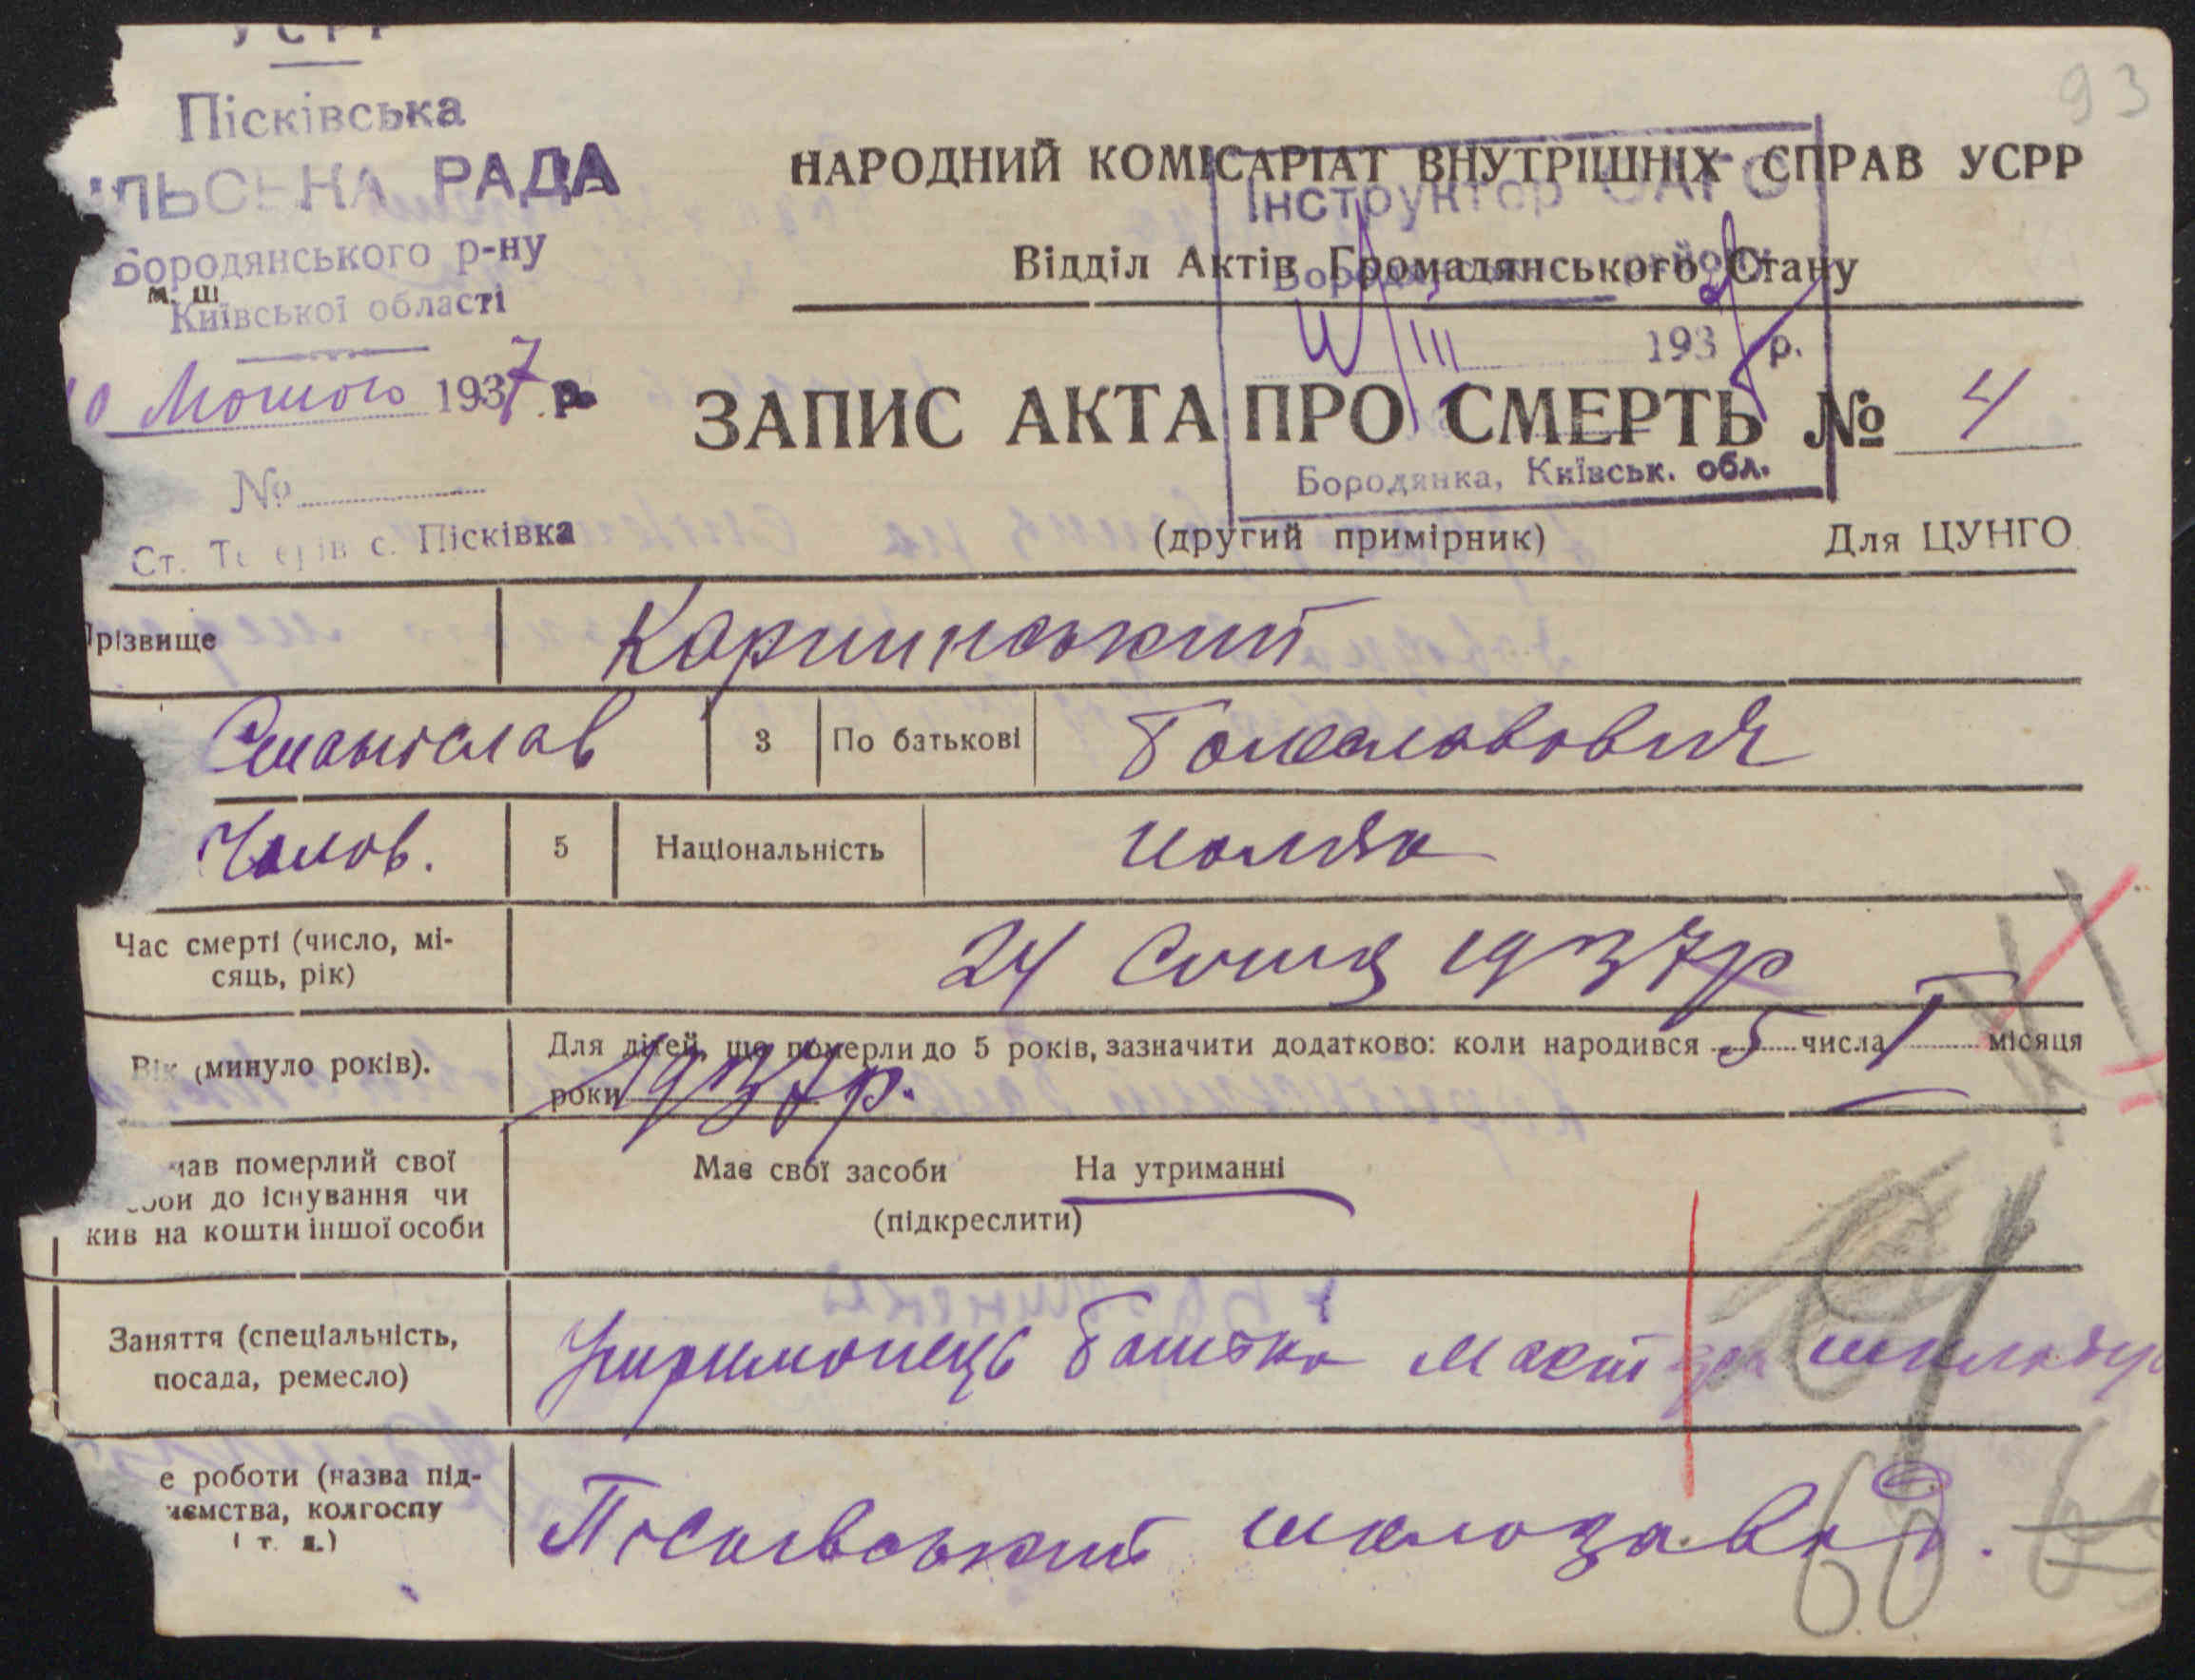 УСРР
93
Пісківська
ІЛЬСЬКА РАДА
Бородянського р-ну
м. ш
Київської області
10 Лютого 1937 р.
№
Ст. Тетерів с. Пісківка
НАРОДНИЙ КОМІСАРІАТ ВНУТРІШНІХ СПРАВ УСРР
Інструктор ЗАГС
Відділ Актів Громадянського Стану
III 193 р.
ЗАПИС АКТА ПРО СМЕРТЬ № 4
Бородянка, Київськ. обл.
(другий примірник) Для ЦУНГО
Прізвище
Станіслав 3 По батькові
Чолов. 5 Національність поляк
Час смерті (число, мі-
сяць, рік)
24 Січня 1937р
Вік (минуло років).
Для дітей, що померли до 5 років, зазначити додатково: коли народився 5 числа I місяця
роки 1937р.
мав померлий свої
оби до існування чи
жив на кошти іншої особи
Має свої засоби На утриманні
(підкреслити)
Заняття (спеціальність,
посада, ремесло)
Утриманець батька
е роботи (назва під-
иємства, колгоспу
і т. д.)
Пісківський шклозавод.
68